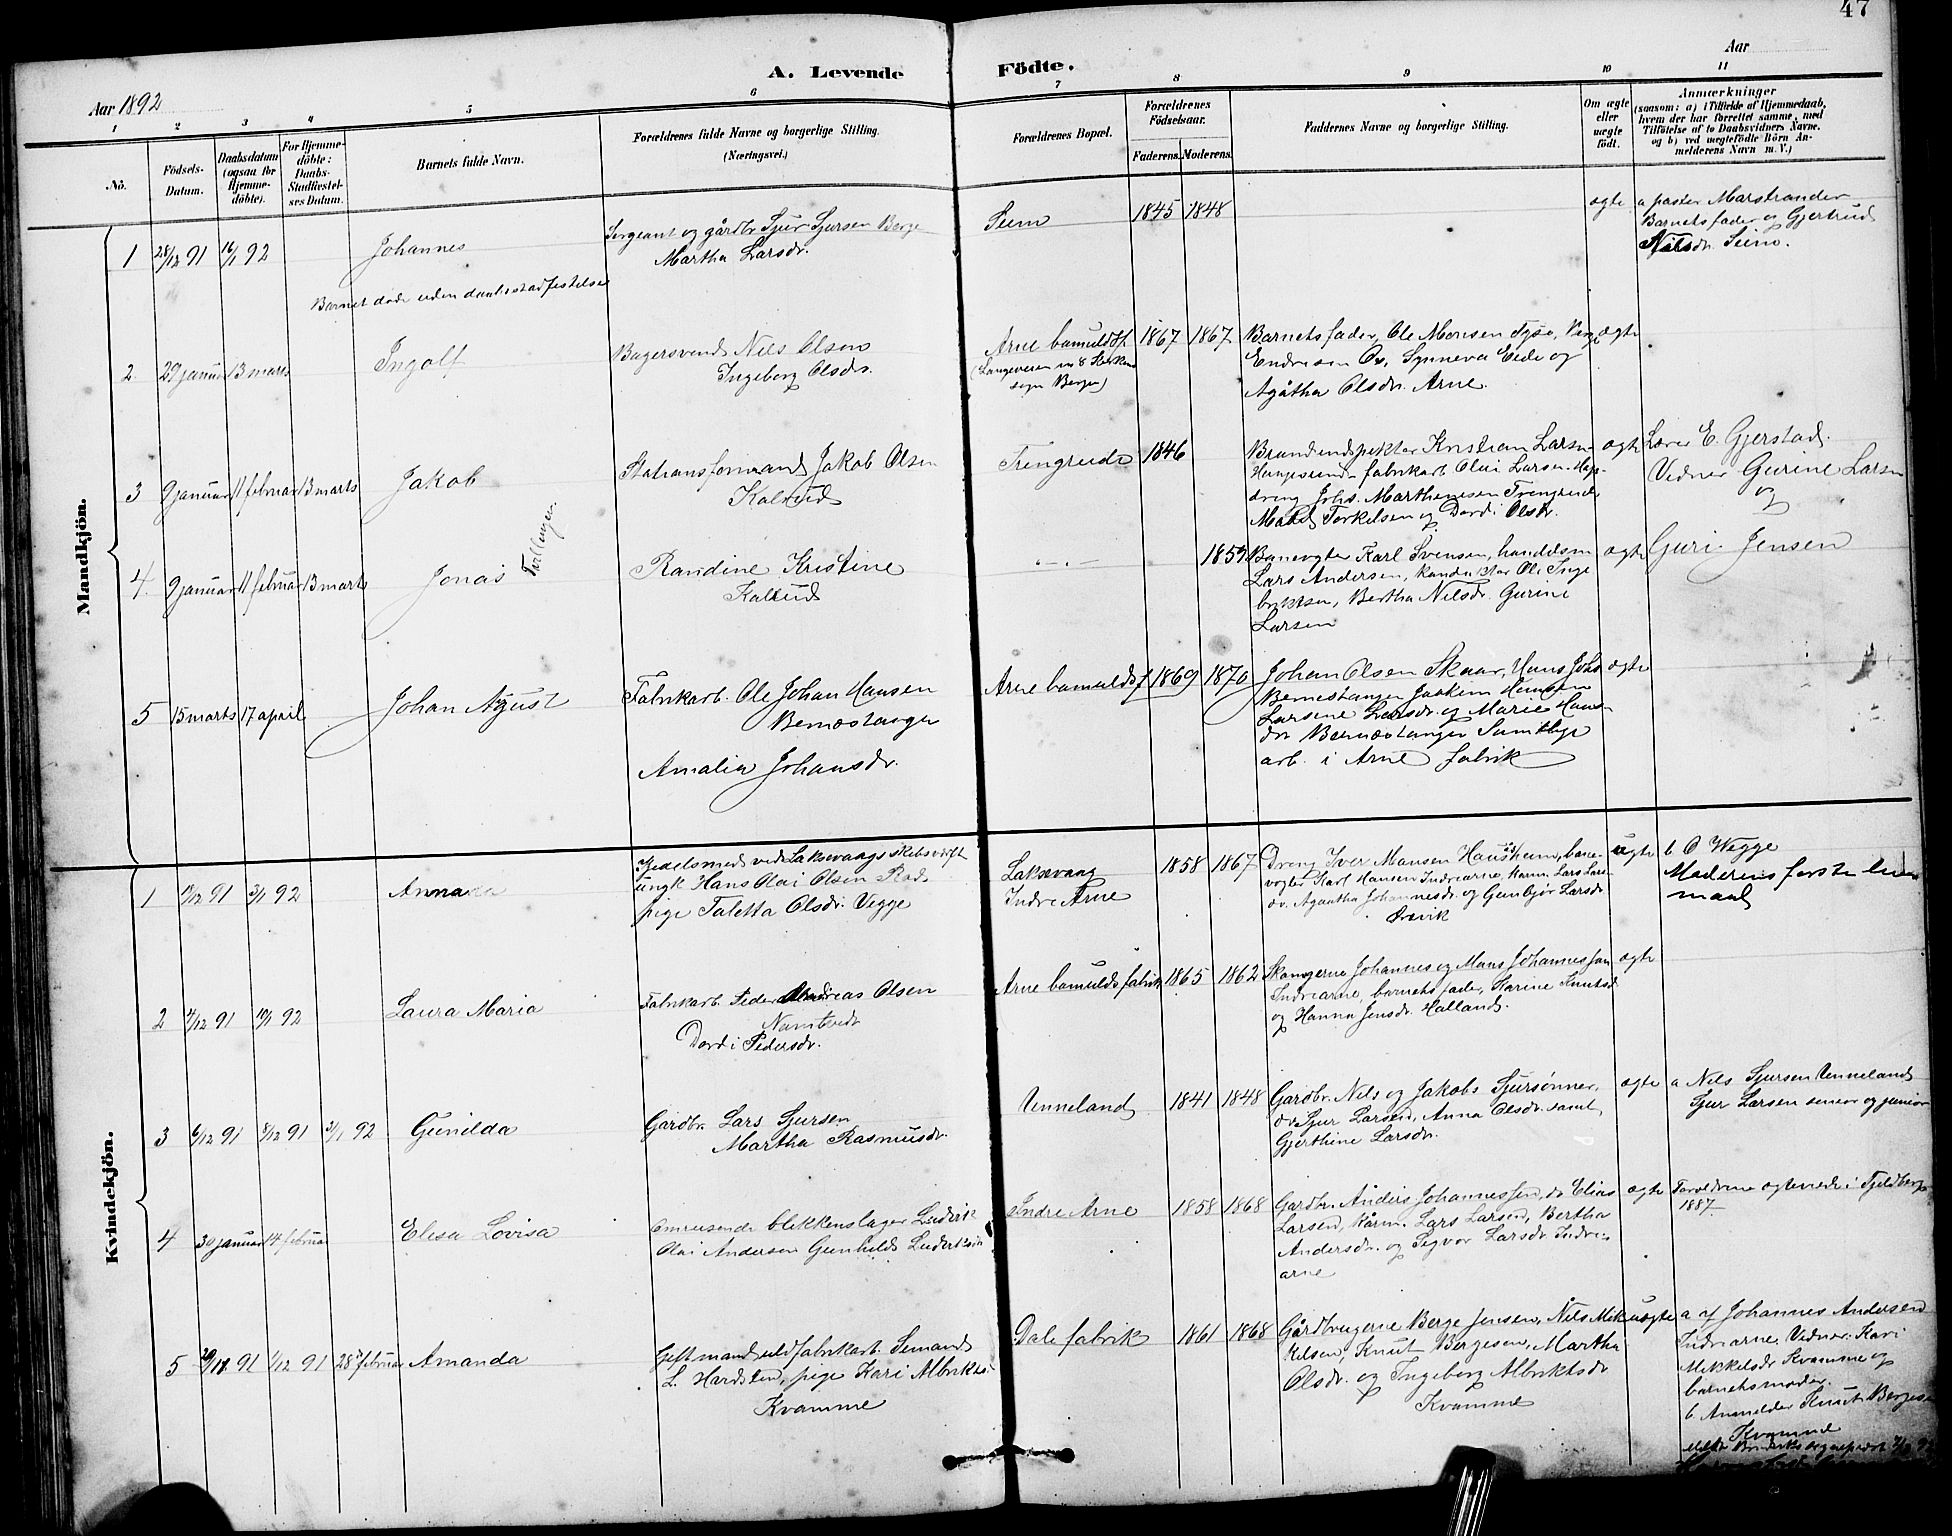 47
A. Levende Födte.
Aar 1892
Aar
1 2 3 4 5 6 7 8 9 10 11
No.
Födsels-
Datum.
Daabsdatum
(ogsaa for
Hjemme-
döbte).
For Hjemme-
döbte:
Daabs-
Stadfæstel-
ses Datum.
Barnets fulde Navn.
Forældrenes fulde Navne og borgerlige Stilling.
(Næringsvei.)
Forældrenes Bopæl.
Forældrenes
Födselsaar.
Faderens. Moderens.
Faddernes Navne og borgerlige Stilling.
Om ægte
eller
uægte
födt.
Anmærkninger
(saasom: a) i Tilfælde af Hjemmedaab,
hvem der har forrettet samme, med
Tilföielse af to Daabsvidners Navne.
og b) ved uegtefödte Börn An-
melderens Navn m. V.)
Mandkjön.
1 28/12 91 16/1 92 Johannes
Barnet døde uden daabsstadfestelse
Sergeant og gårdbr Sjur Sjursen Berge
Martha Larsdr.
Seim 1845 1848
ægte
a pastor Marstrander
Barnets fader og Gjertrud
Nilsdr. Seim.
2 29 januar 13 marts Ingolf
Bagersvend Nils Olsen
Ingeborg Olsdr.
Arne bomuldsf.
sogn Bergen)
1867 1867
Barnets fader, Ole Monsen Tysse,
Endresen Synneva Eide og
Agåtha Olsdr. Arne.
ægte
3 9 januar 11 februar 13 marts Jakob
Tvillinger.
Stationsformand Jakob Olsen
Kalrud
Trengreide 1846
Kristian Larsen
fabrikarb. Olai Larsen
dreng Johs. Marthinusen Trengreid
Torkelsen og Dordi Olsdr.
ægte
Lærer E. Gjerstad.
Vidner Gurine Larsen
og
4 9 januar 11 februar 13 marts Jonas
Randine Kristine
Kalrud
- . - 1859
Banevogter Karl Svensen, handelsm
Lars Andersen, konduktør Ole Inge
briktsen, Bertha Nilsdr. Gurine
Larsen
ægte
Guri Jensen
5 15 marts 17 april Johan Agust
Fabrikarb. Ole Johan Hansen
Bernestanger
Amalia Johansdr.
Arne bomuldsf 1869 1870
Johan Olsen Skaar, Hans Johs
Bernestanger Joakim Hansen
Larsine Larsdr. og Marie Hans-
dr Bernestanger Samtlige
arb. i Arne fabrik
ægte
Kvindekjön.
1 /12 91 3/1 92 Anna
Kjedelsmed ved Laksevaags skibsverft
ungk Hans Olai Olsen
pige Taletta Olsdr. Vegge
Laksevaag
Indre Arne
1858 1867
Dreng Iver Mansen bane-
vogter Karl Hansen Indrearne, Lars Lars-
Agautha Johannesdr. og Gunbjør Larsdr
uægte
b O Vegge
Moderens første leier
maal
2 4/12 91 10/1 92 Laura Maria
Fabrikarb. Peder Andreas Olsen
Dordi Pedersdr.
Arne bomulds fabrik 1865 1862
Johannes og Mons Johannessen
Indrearne, barnets fader, Karine Knutsd
og Hanna Jensdr. Halland.
ægte
3 6/12 91 8/12 91 3/1 92 Gunilda
Gardbr. Lars Sjursen
Martha Rasmusdr.
Unneland 1841 1848
Gardbr. Nils og Jakob Sjursønner,
do Sjur Larsen, Anna Olsdr. samt
Gjerthine Larsdr.
ægte
a Nils Sjursen Unneland
Sjur Larsen senior og junior
4 30 januar 14 februar Elesa Lovisa
Omreisende blikkenslager Luderik
Olai Andersen Gunhild Luderiksdr
Indre Arne 1858 1868
Gardbr. Anders Johannessen, do Elias
Larsen, Kårm. Lars Larsen, Bertha
Andersdr. og Sigvor Larsdr Indre-
arne
ægte
Forældrene ægteviede i Fjeldberg
1887
5 91 1/12 91 28 februar Amanda
Gift mand uldfabrikarb. Semand
L. Hardsten, pige Kari Albrikts.
Kvamme
Dale fabrik 1861 1868
Gårdbrugerne Berge Jensen, Nils Mik
kelsen, Knut Bergesen, Martha
Olsdr. og Ingeborg Albriktsdr
Kvamme
uægte
a af Johannes Andersen
Indrearne, Vidner: Kari
Mikkelsdr Kvamme og
barnets moder.
b Anmelder Knut Bergesen
Kvamme